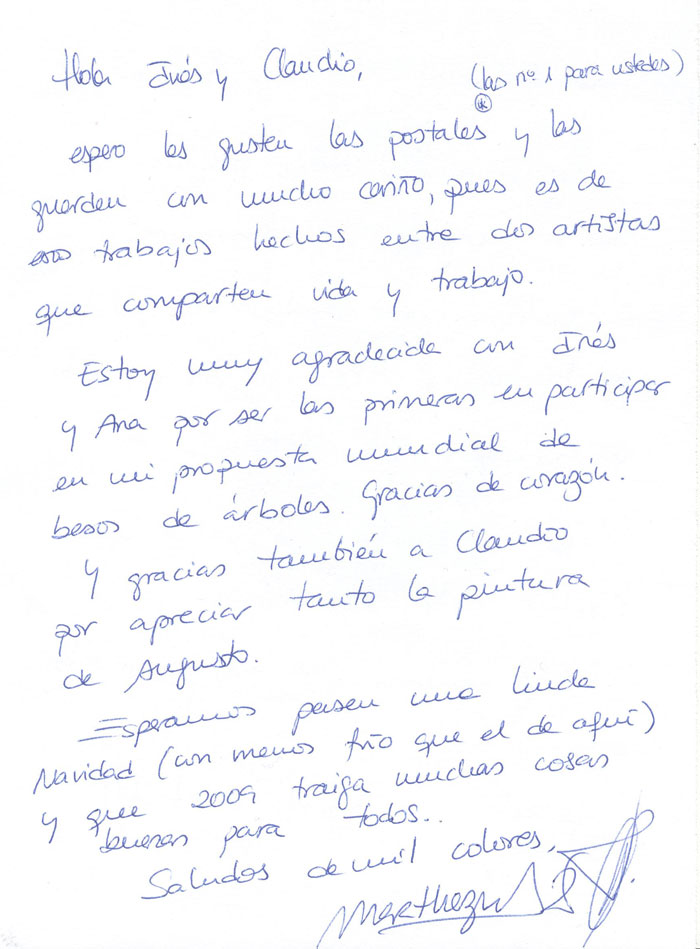 Hola Inés y Claudio,
(las nº 1 para ustedes)
espero les gusten las postales * y las
guarden con mucho cariño, pues es de
trabajos hechos entre dos artistas
que comparten vida y trabajo.
Estoy muy agradecida con Inés
y Ana por ser las primeras en participar
en mi propuesta mundial de
besos de árboles. Gracias de corazón.
Y gracias también a Claudio
por apreciar tanto la pintura
de Augusto.
Esperamos pasen una linda
Navidad (con menos frío que el de aquí)
y que 2009 traiga muchas cosas
buenas para todos..
Saludos de mil colores,